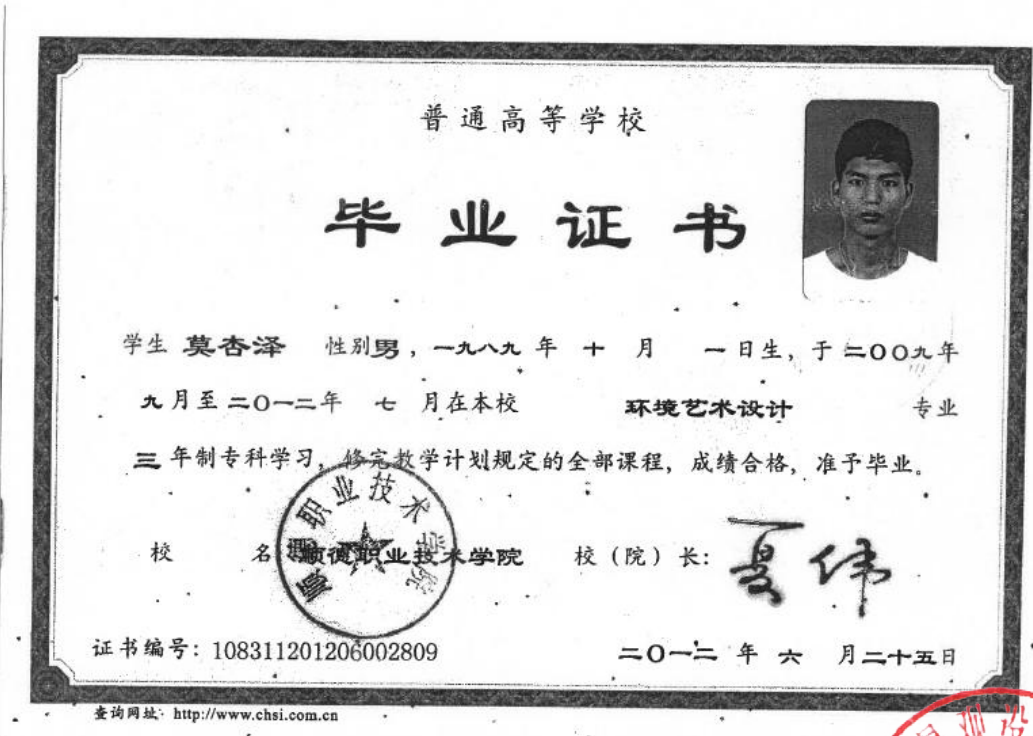 普通高等学校
毕业证书
学生 莫杏泽 性别男，一九八九 年 十 月 一日生，于二〇〇九年
九月至二〇一二年 七 月在本校 环境艺术设计 专业
三 年制专科学习，修完教学计划规定的全部课程，成绩合格，准予毕业。
校 名 顺德职业技术学院 校（院）长：夏伟
顺德职业技术学院
证书编号：108311201206002809 二〇一二 年 六 月二十五日
查询网址：http://www.chsi.com.cn